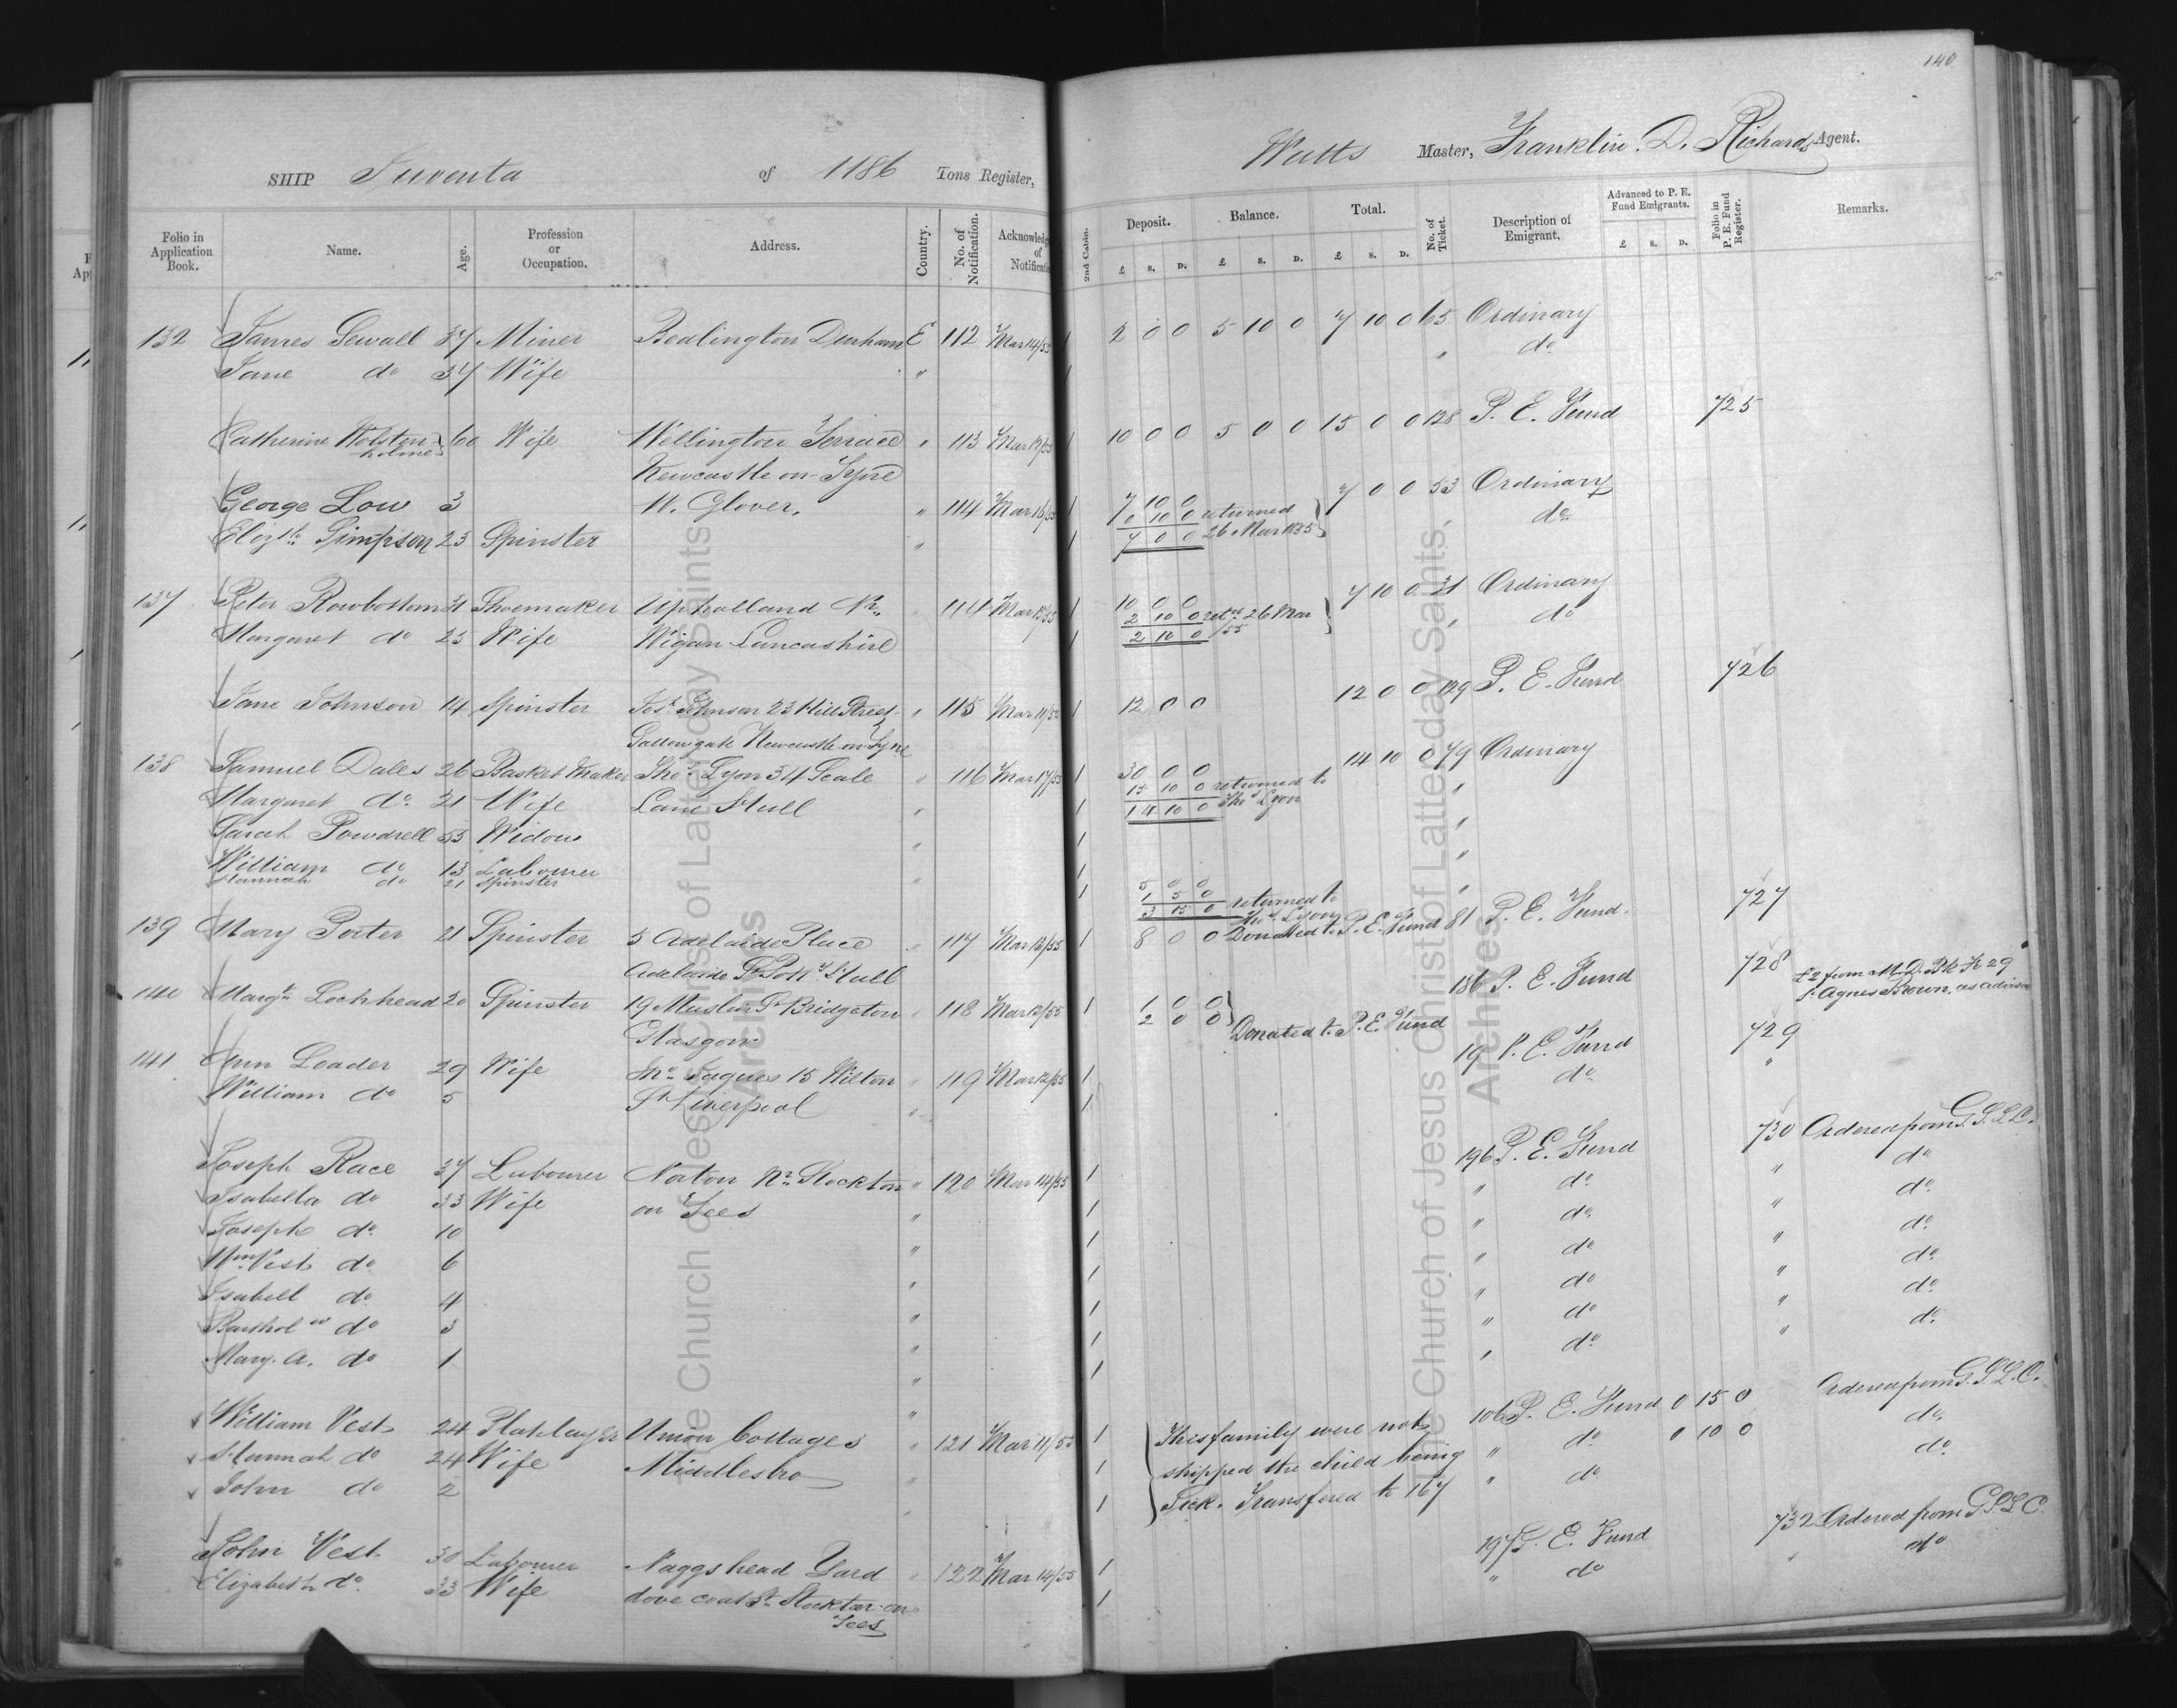 140
SHIP Juventa of 1186 Tons Register, Watts Master, Franklin. D. Richards Agent.
Folio in Application Book. Name. Age. Profession or Occupation. Address. Country. No. of Notification. Acknowled of Notificati 2nd Cabin. Deposit. £ S. D. Balance. £ S. D. Total. £ S. D. No. of Ticket. Description of Emigrant. Advanced to P. E. Fund Emigrants. £ S. D. Folio in P. E. Fund Register. Remarks.
132 James Sewall 37 Miner Bedlington Durham E 112 Mar 14/55 1 2 0 0 5 10 0 7 10 0 65 Ordinary
Jane do 37 Wife " 1 " do
Catherine Wolston- 60 Wife Wellington Terrace " 113 Mar 12/55 1 10 0 0 5 0 0 15 0 0 128 P. E. Fund 725
holme
Newcastle on Tyne
George Low 3 W. Glover. " 114 Mar 16/55 1 7 10 0 7 0 0 53 Ordinary
0 10 0 returned
Elizth Simpson 23 Spinster " 1 7 0 0 26 Mar 1855 " do
137 Peter Rowbottom 31 Shoemaker Upholland Nr. " 114 Mar 15/55 1 10 0 0 7 10 0 31 Ordinary
2 10 0 retd 26 Mar
Margaret do 25 Wife Wigan Lancashire 1 2 10 0 /55 " do
Jane Johnson 14 Spinster Jos. Johnson 23 Hill Street " 115 Mar 11/55 1 12 0 0 12 0 0 129 P. E. Fund 726
Gallowgate Newcastle on Tyne
138 Samuel Dales 26 Basket Maker Thos Lyon 34 Scale " 116 Mar 17/55 1 30 0 0 14 10 0 79 Ordinary
15 10 0 returned to
Margaret do. 21 Wife Lane Hull " 1 14 10 0 Thos Lyon "
Sarah Powdrell 55 Widow " 1 "
William do 13 Labourer " 1 "
Hannah do 21 Spinster 1 5 0 0 "
1 5 0 returned to
3 15 0 Thos Lyon
139 Mary Porter 21 Spinster 5 Adelaide Place " 117 Mar 12/55 1 8 0 0 Donated to P. E. Fund 81 P. E. Fund. 727
Adelaide St Hull
140 Margt Lochhead 20 Spinster 19 Muslin St Bridgeton " 118 Mar 12/55 1 1 0 0 186 P. E. Fund 728 £2 from M. D. Bk
2 0 0 Donated to P. E. Fund Agnes Brown, as
Glasgow
141 Ann Loader 29 Wife Jaques 15 Wilton " 119 Mar 12/55 1 19 P. E. Fund 729
William do 5 St Liverpool " 1 do "
Joseph Race 37 Labourer Norton Nr. Stockton " 120 Mar 14/55 1 196 P. E. Fund 730 Ordered from G. S. L. C.
Isabella do 33 Wife on Tees " 1 " do " do
Joseph do. 10 " 1 " do " do.
Wm Vest do 6 " 1 " do " do.
Isabell do 4 " 1 " do " do.
Barthol w do 3 " 1 " do " do.
Mary. A. do 1 " 1 " do " do.
William Vest 24 Platelayer Union Cottages " 121 Mar 11/55 1 This family were not 106 P. E. Fund 0 15 0 Ordered from G. S. L. C.
Hannah do 24 Wife Middlesbro " 1 shipped the child being " do 0 10 0 do.
John do 2 " 1 Sick. Transfered to 167 " do do.
John Vest 30 Labourer Naggshead Yard " 122 Mar 14/55 1 197 P. E. Fund 732 Ordered from G. S. L. C.
Elizabeth do. 33 Wife dove coat St. Stockton on 1 " do do
Tees
The Church of Jesus Christ of Latter-day Saints,
Archives
The Church of Jesus Christ of Latter-day Saints,
Archives